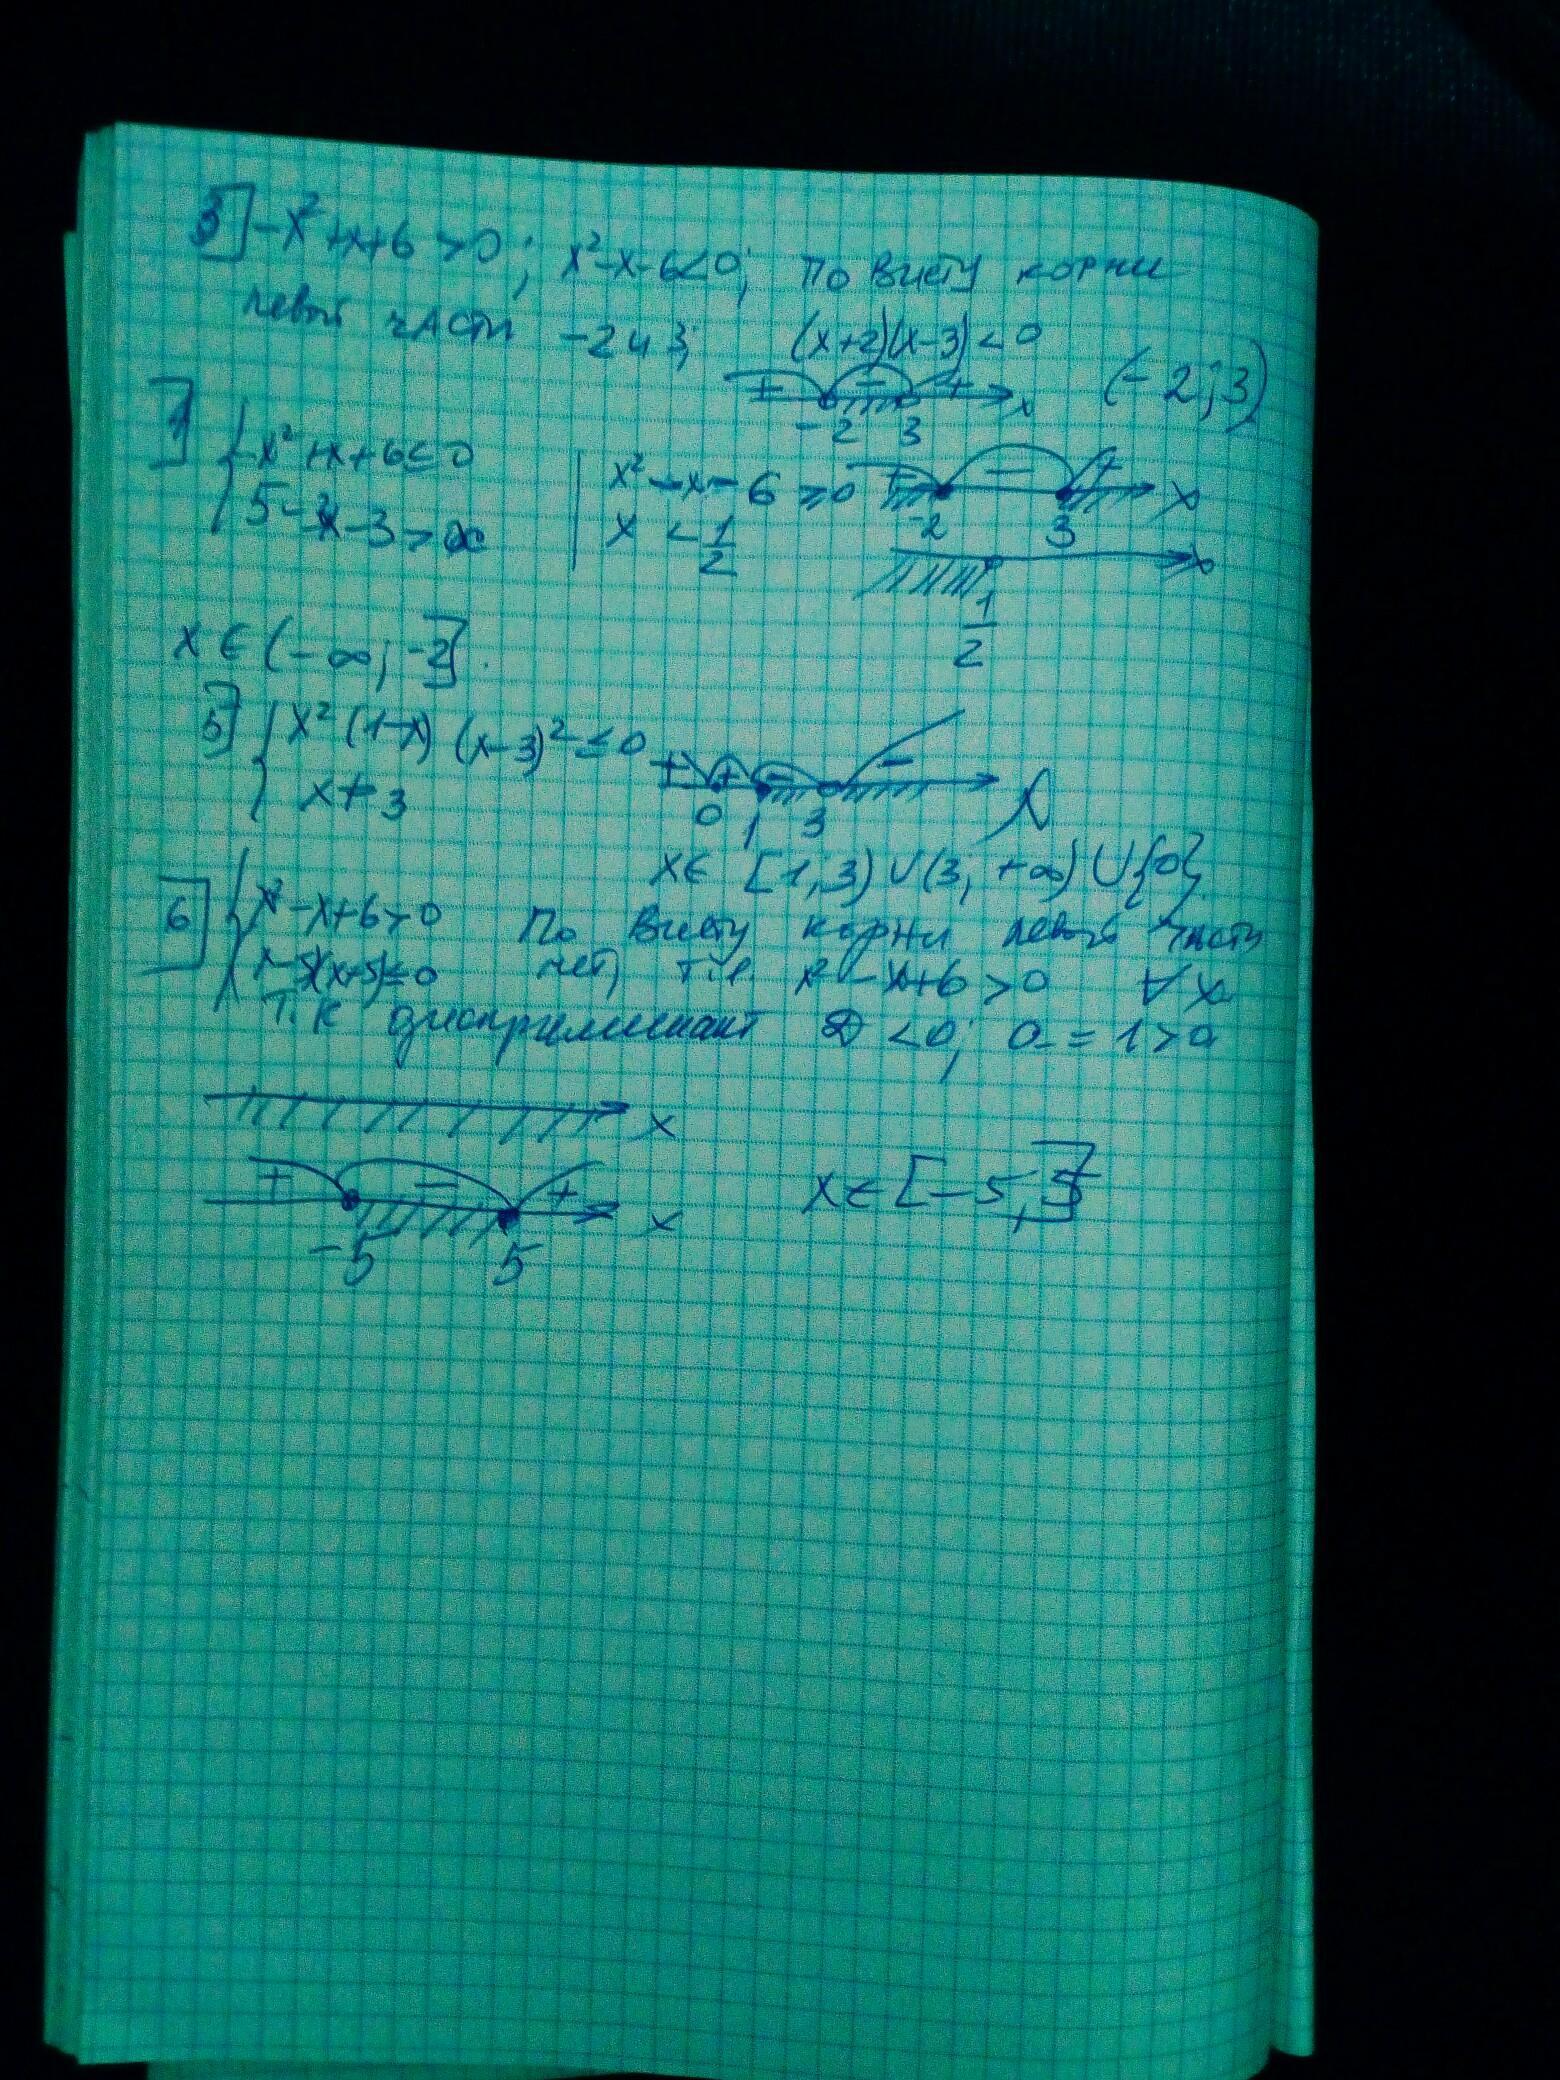 3] -x²+x+6>0; x²-x-6<0; по Виету корни
левой части -2 и 3; (x+2)(x-3)<0
+ - + x (-2; 3)
-2 3
{ -x²+x+6≤0 | x²-x-6≥0 + - + x
-2 3
x < 1/2 x
1/2
x ∈ (-∞; -2].
5] { x²(1-x)(x-3)²≤0 + + - -
x≠3 0 1 3
x∈ [1; 3) ∪ (3; +∞) ∪ {0}.
6] { x²-x+6>0 По Виету корни левой части
x-5)(x+5)≤0 нет, т.е. x²-x+6>0 ∀x
Т.к дискриминант D<0; a=1>0
x
+ - + x x∈[-5; 5]
-5 5